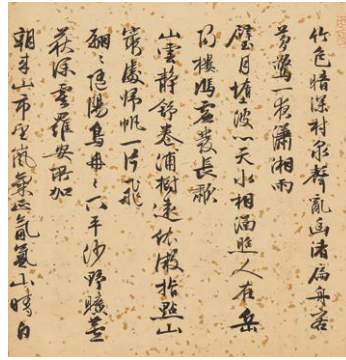 竹色暗深村泉聲亂幽渚扁舟客
夢驚一夜瀟湘雨
璧月墮波心天水相涵照人在岳
陽樓馮虛發長歗
山雲靜舒卷浦樹遠依微指點山
窮處歸帆一片飛
翩翩隨陽鳥冉冉下平沙野曠葦
荻深雲羅安所加
朝來山市嵐氣正氤氳山晴白